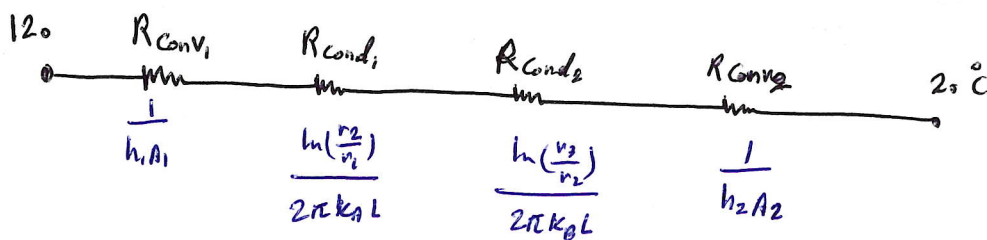 120 Rconv₁ Rcond₁ Rcond₂ Rconv₂ 20 °C
1/(h₁A₁) ln(r₂/r₁)/(2πk_A L) ln(r₃/r₂)/(2πk_B L) 1/(h₂A₂)